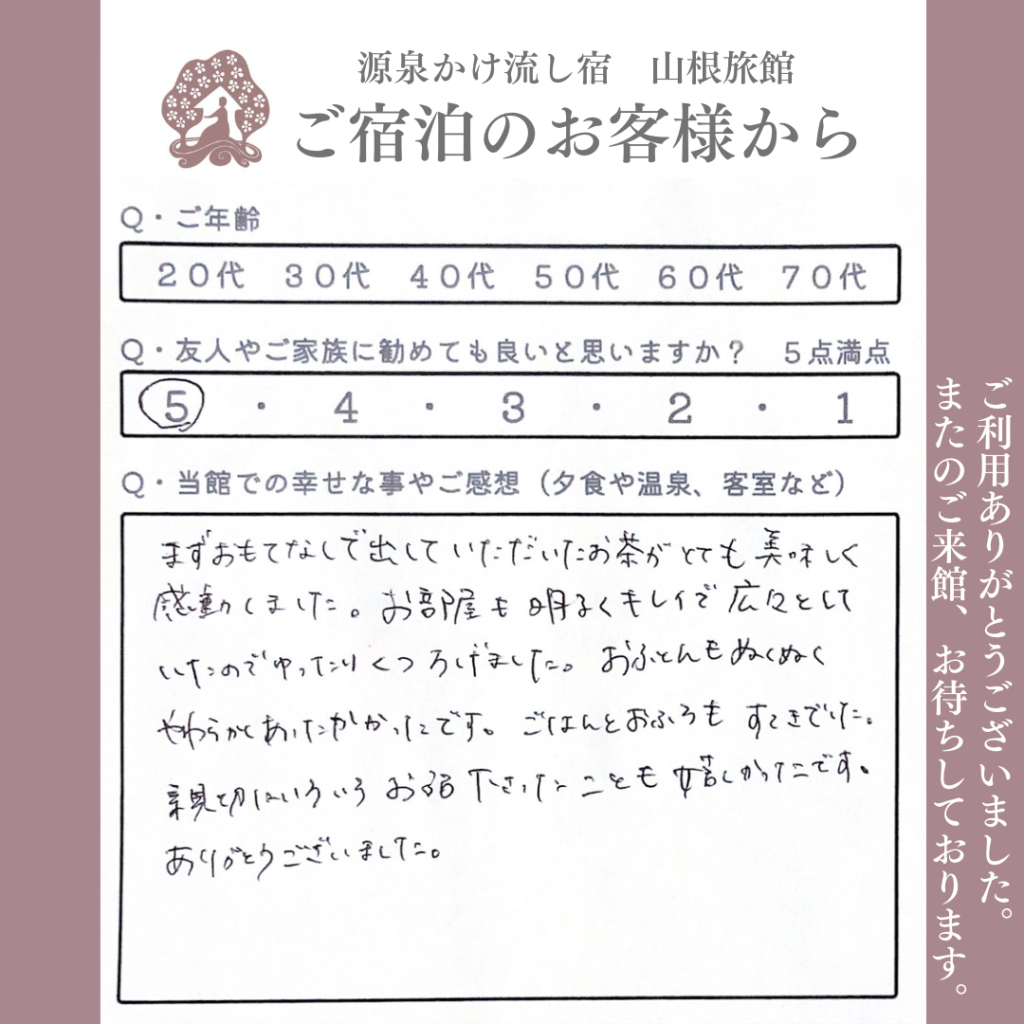 源泉かけ流し宿　山根旅館
ご宿泊のお客様から
Q・ご年齢
20代　30代　40代　50代　60代　70代
Q・友人やご家族に勧めても良いと思いますか？　5点満点
5　・　4　・　3　・　2　・　1
Q・当館での幸せな事やご感想（夕食や温泉、客室など）
まずおもてなしで出していただいたお茶がとても美味しく
感動しました。お部屋も明るくキレイで広々として
いたのでゆったりくつろげました。おふとんもぬくぬく
やわらかくあたたかかったです。ごはんとおふろもすてきでした。
親切にいろいろお話下さったことも嬉しかったです。
ありがとうございました。
ご利用ありがとうございました。
またのご来館、お待ちしております。